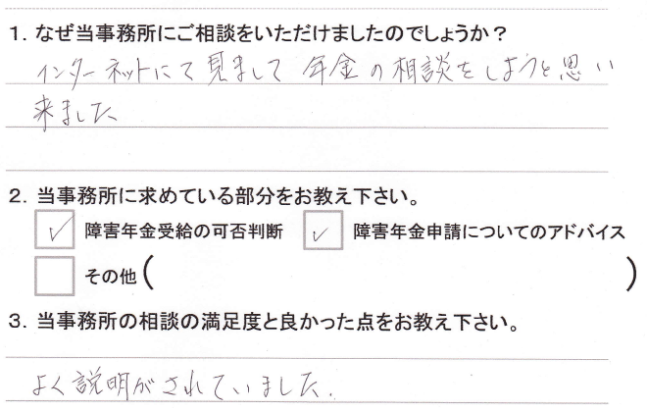 1. なぜ当事務所にご相談をいただけましたのでしょうか？
インターネットにて見まして 年金の相談をしようと思い
来ました
2. 当事務所に求めている部分をお教え下さい。
障害年金受給の可否判断 障害年金申請についてのアドバイス
その他( )
3. 当事務所の相談の満足度と良かった点をお教え下さい。
よく説明がされていました.